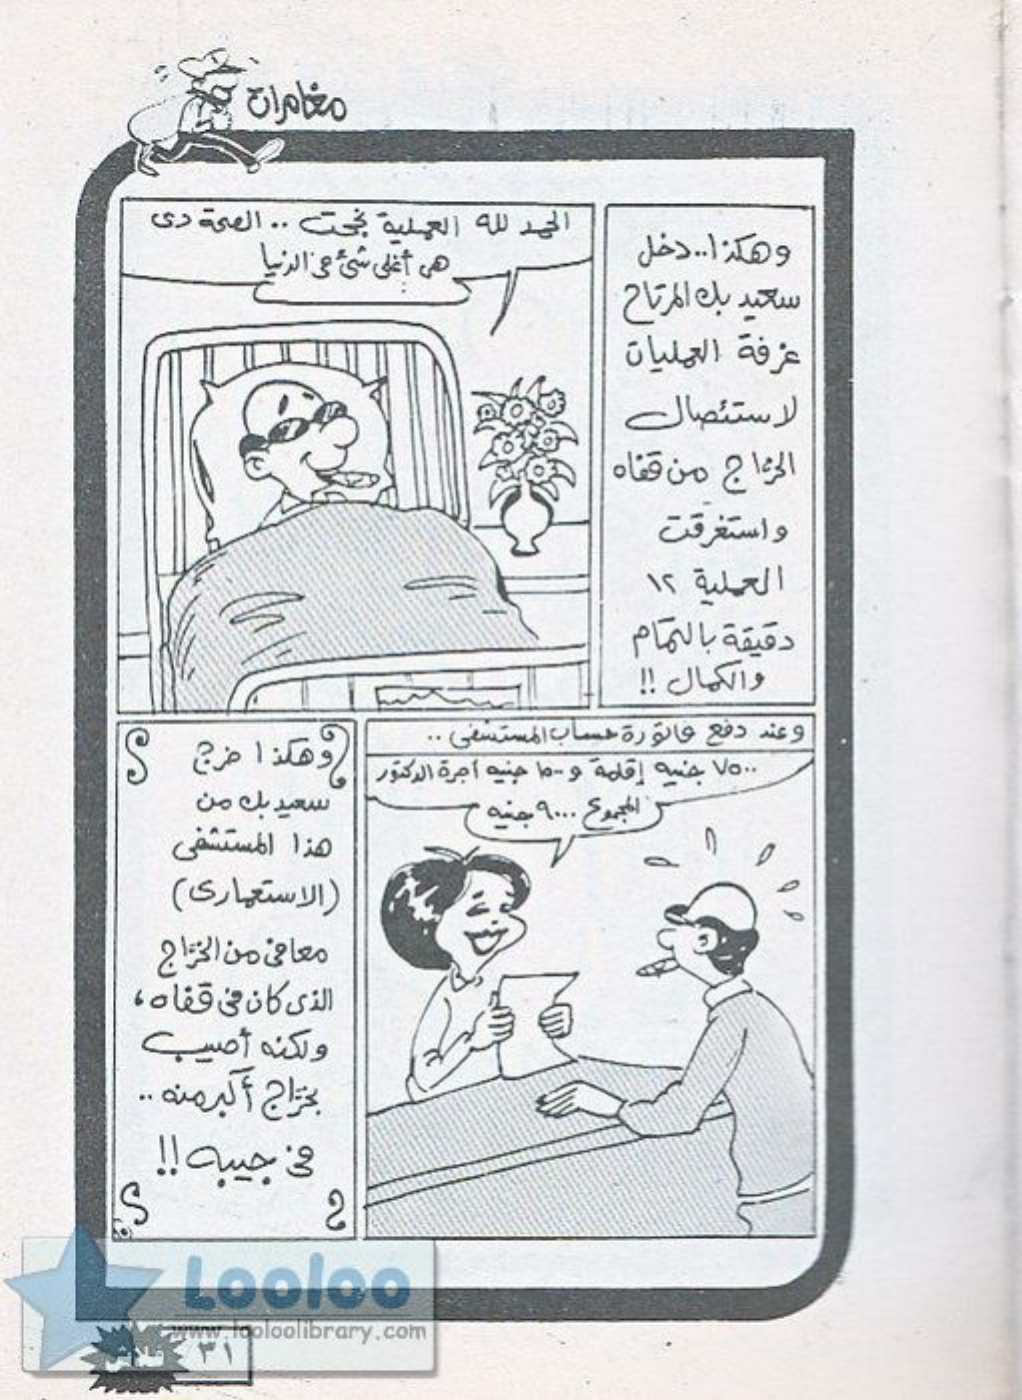 مغامرات
وهكذا..دخل
سعيد بك المرتاح
غرفة العمليات
لاستئصال
الخرّاج من قفاه
واستغرقت
العملية ١٢
دقيقة بالتمام
والكمال !!
الحمد لله العملية نجحت .. الصحة دى
هى أغلى شئ فى الدنيا
وعند دفع فاتورة حساب المستشفى ..
٧٥٠٠ جنيه إقامة و ١٥٠٠ جنيه أجرة الدكتور
المجموع ٩٠٠٠ جنيه
وهكذا خرج
سعيد بك من
هذا المستشفى
(الاستعمارى)
معافى من الخرّاج
الذى كان فى قفاه،
ولكنه أصيب
بخرّاج أكبر منه ..
فى جيبه !!
Looloo
www.looloolibrary.com
٣١